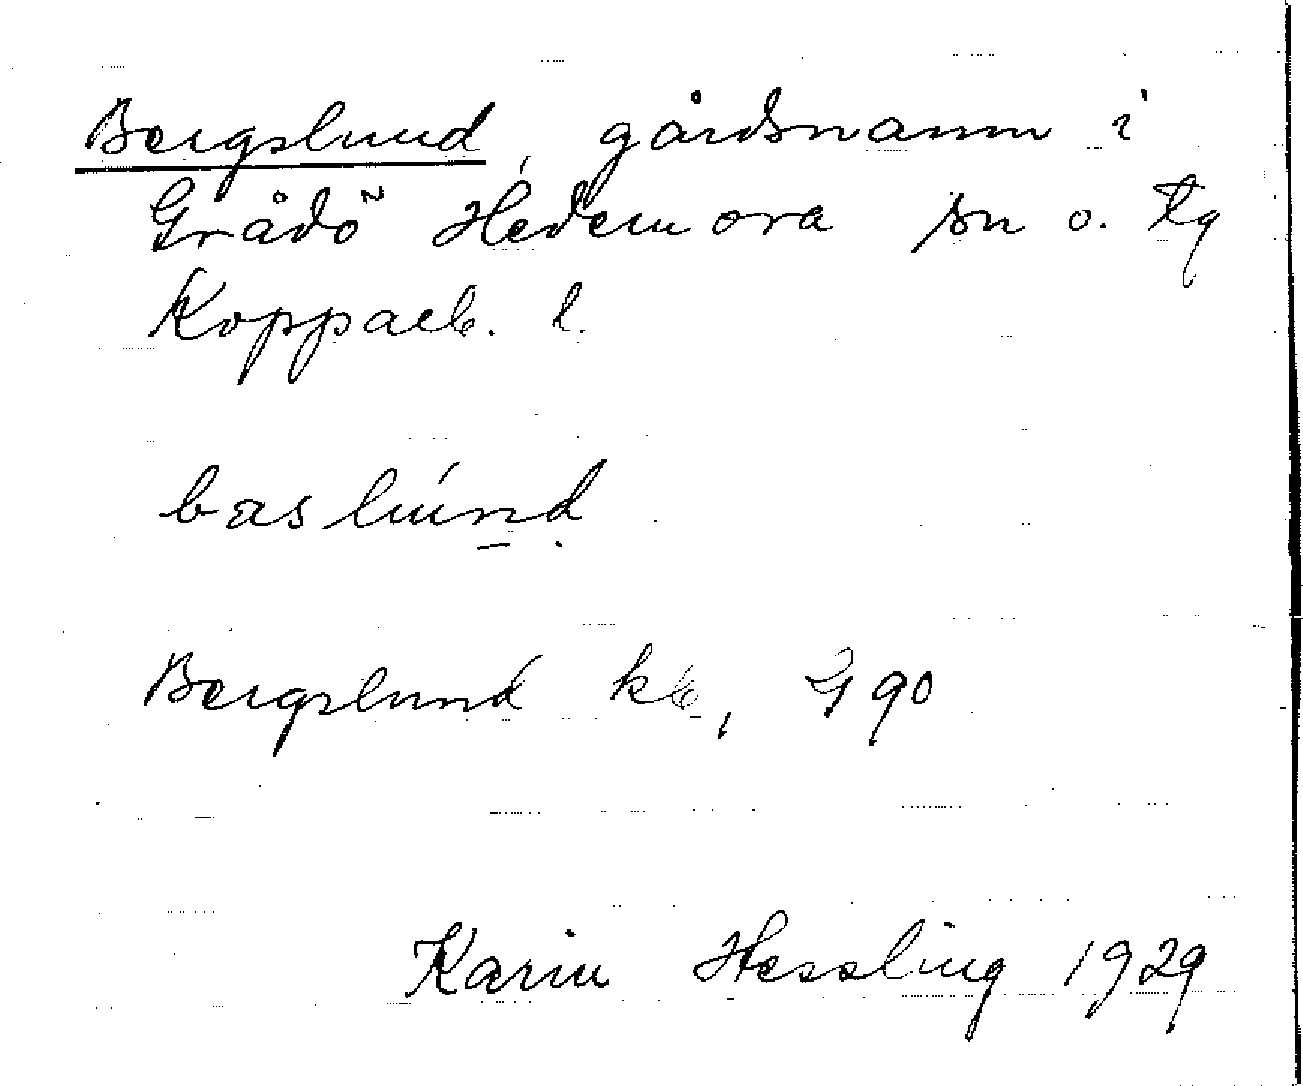 Bergslund, gårdsnamn i
Grådö Hedemora sn o. tg
Kopparb. l.
baslúnd
Bergslund kb, G 90
Karin Hessling 1929